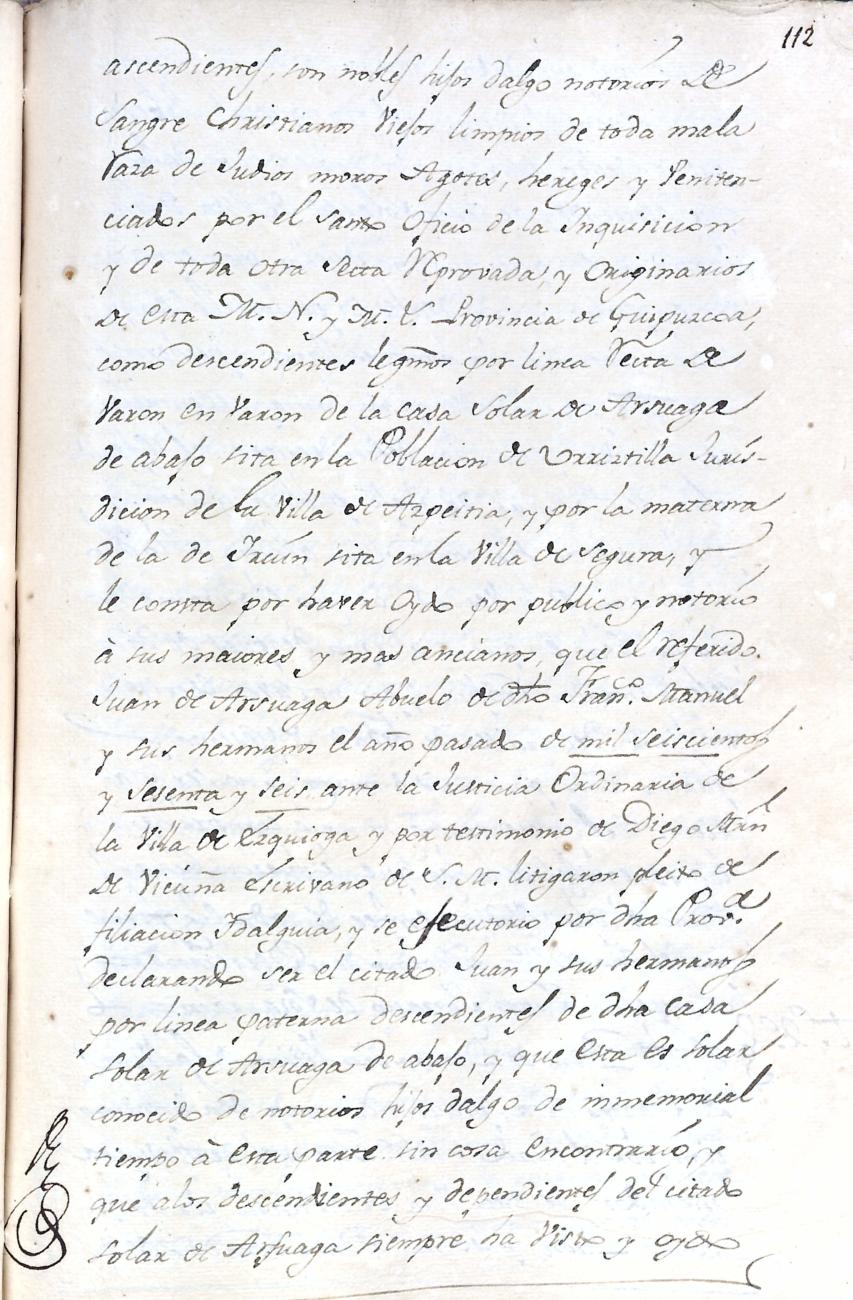 112
ascendientes, son nobles hijos dalgo notorios de
Sangre Christianos Viejos limpios de toda mala
Raza de Judios moros Agotes, hereges y Peniten-
ciados por el santo Oficio de la Inquisicion
y de toda otra secta Reprovada, y Originarios
de esta M. N. y M. L. Provincia de Guipuzcoa,
como descendientes legmos por linea Recta de
Varon en Varon de la casa Solar de Arsuaga
de abajo sita en la Poblacion de Urriztilla Juris-
dicion de la Villa de Azpeitia, y por la materna
de la de Ircin sita en la Villa de Segura, y
le consta por haver Oydo por publico y notorio
à sus maiores y mas ancianos, que el Referido
Juan de Arsuaga Abuelo de dho Franco. Manuel
y sus hermanos el año pasado de mil seiscientos
y sesenta y seis ante la Justicia Ordinaria de
la Villa de Ezquioga y por testimonio de Diego Mrn
de Vicuña escrivano de S. M. litigaron pleito de
filiacion Idalguia, y se ejecutorio por dha Prova.
declarando ser el citado Juan y sus hermanos
por linea paterna descendientes de dha casa
solar de Arsuaga de abajo, y que esta es solar
conocido de notorios hijos dalgo de inmemorial
tiempo à esta parte sin cosa encontrario, y
que alos descendientes y dependientes del citado
solar de Arsuaga siempre ha Visto y oydo